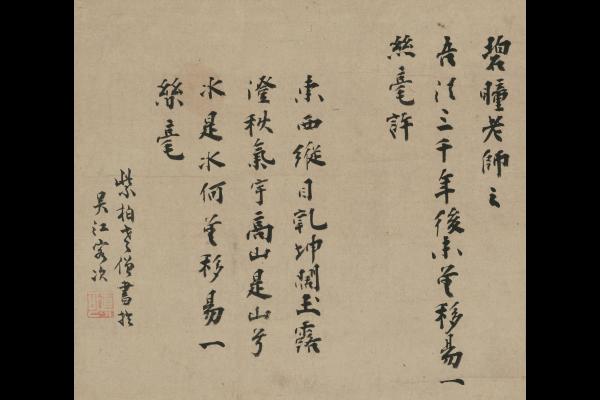 碧瞳老師云
吾法三千年後未曾移易一
絲毫許
東西縱目乾坤闊玉露
澄秋氣宇高山是山兮
水是水何曾移易一
絲毫
紫柏老僧書於
吳江客次